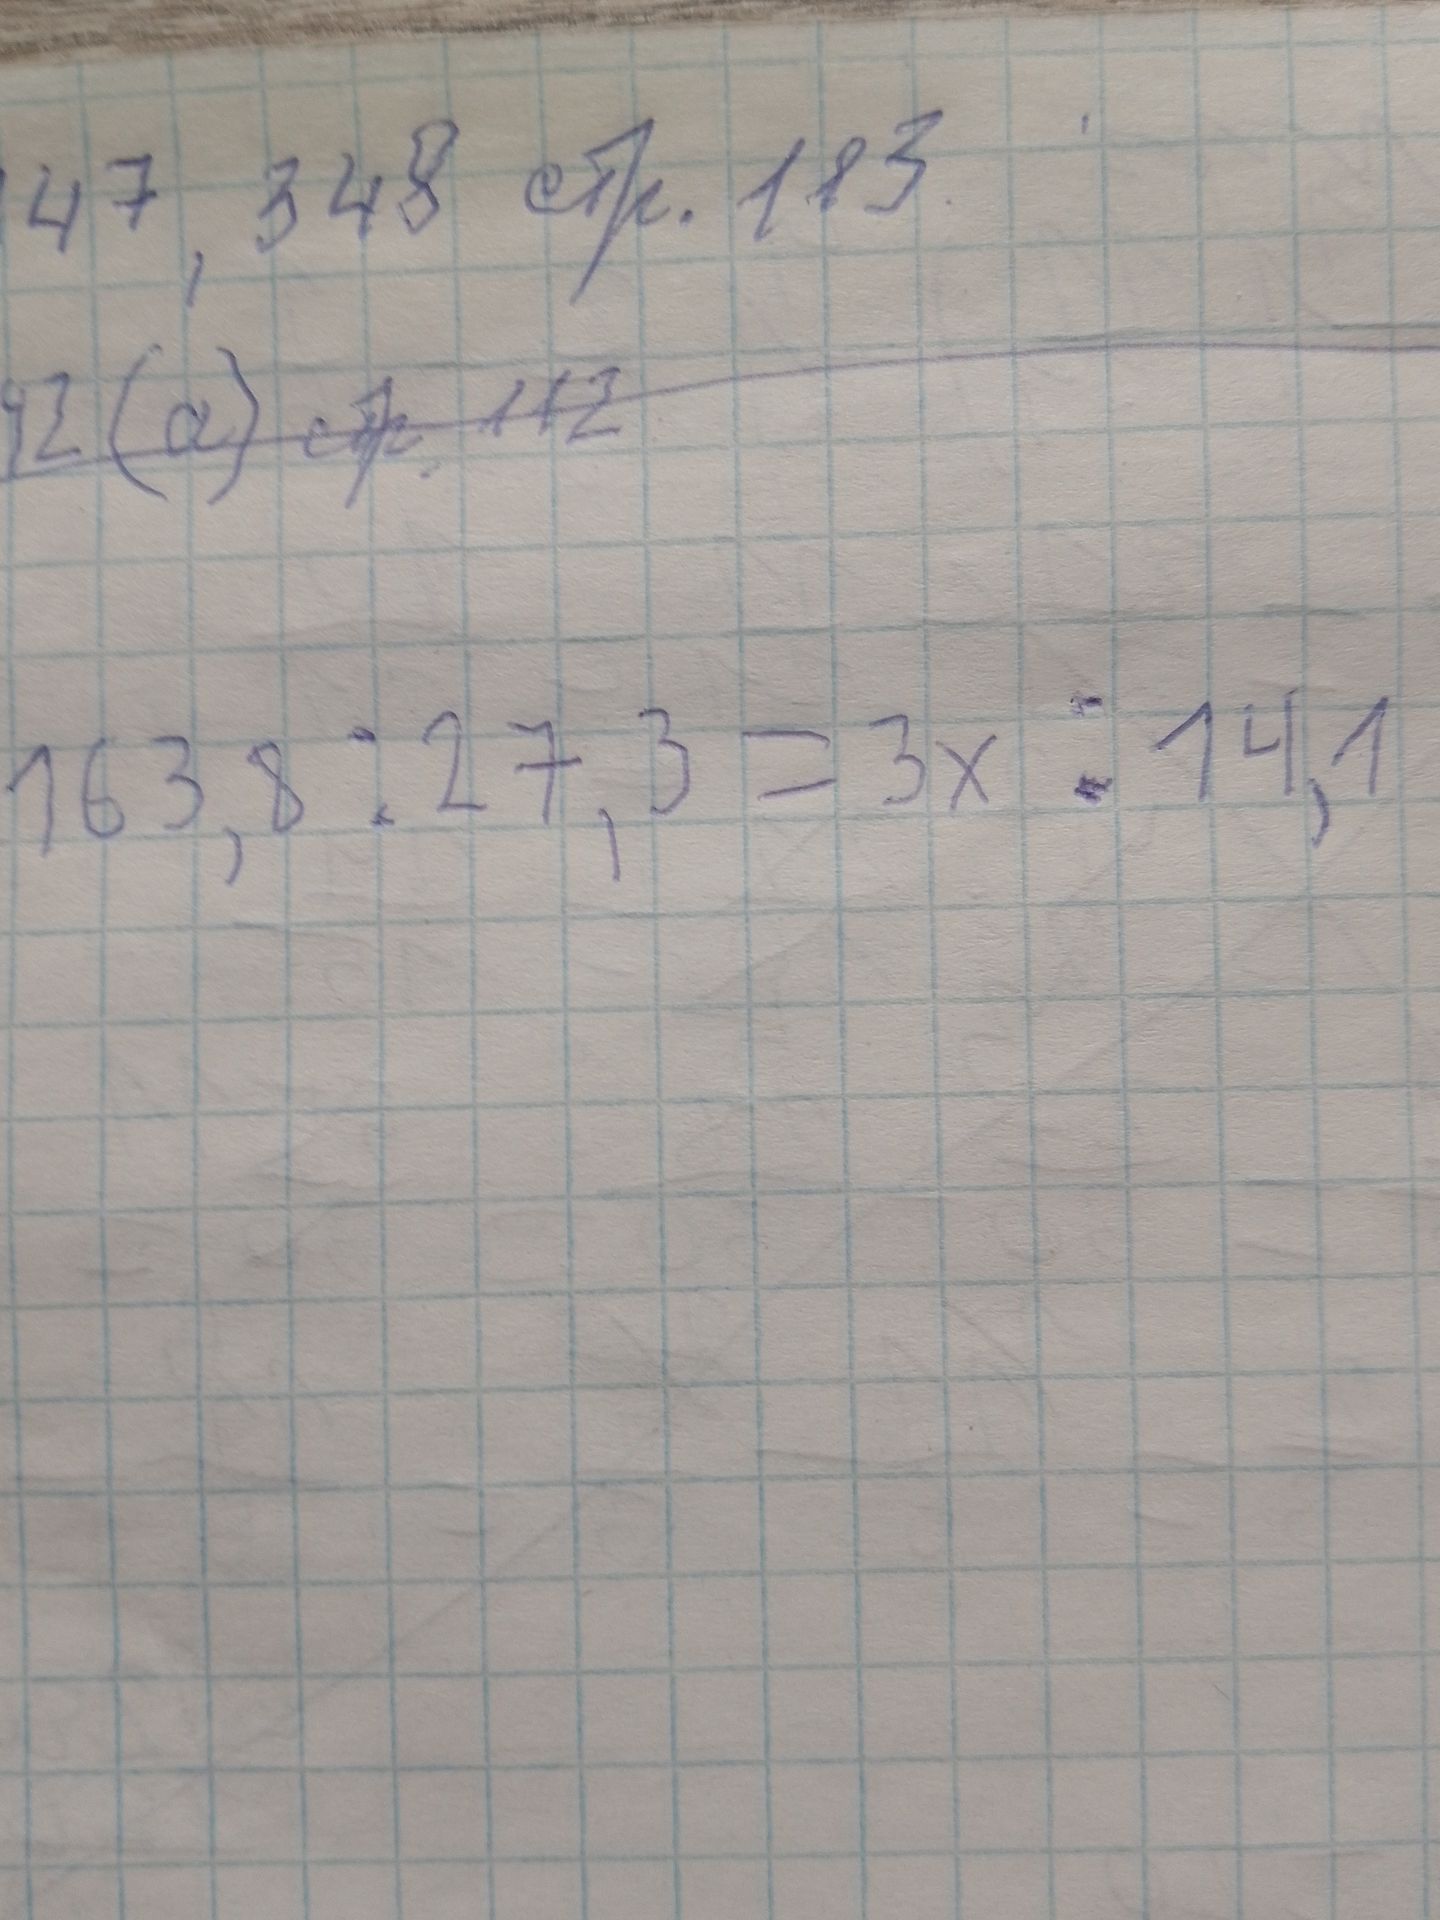 47, 348 стр. 113.
42(а) стр. 112
163,8 : 27,3 = 3x : 14,1